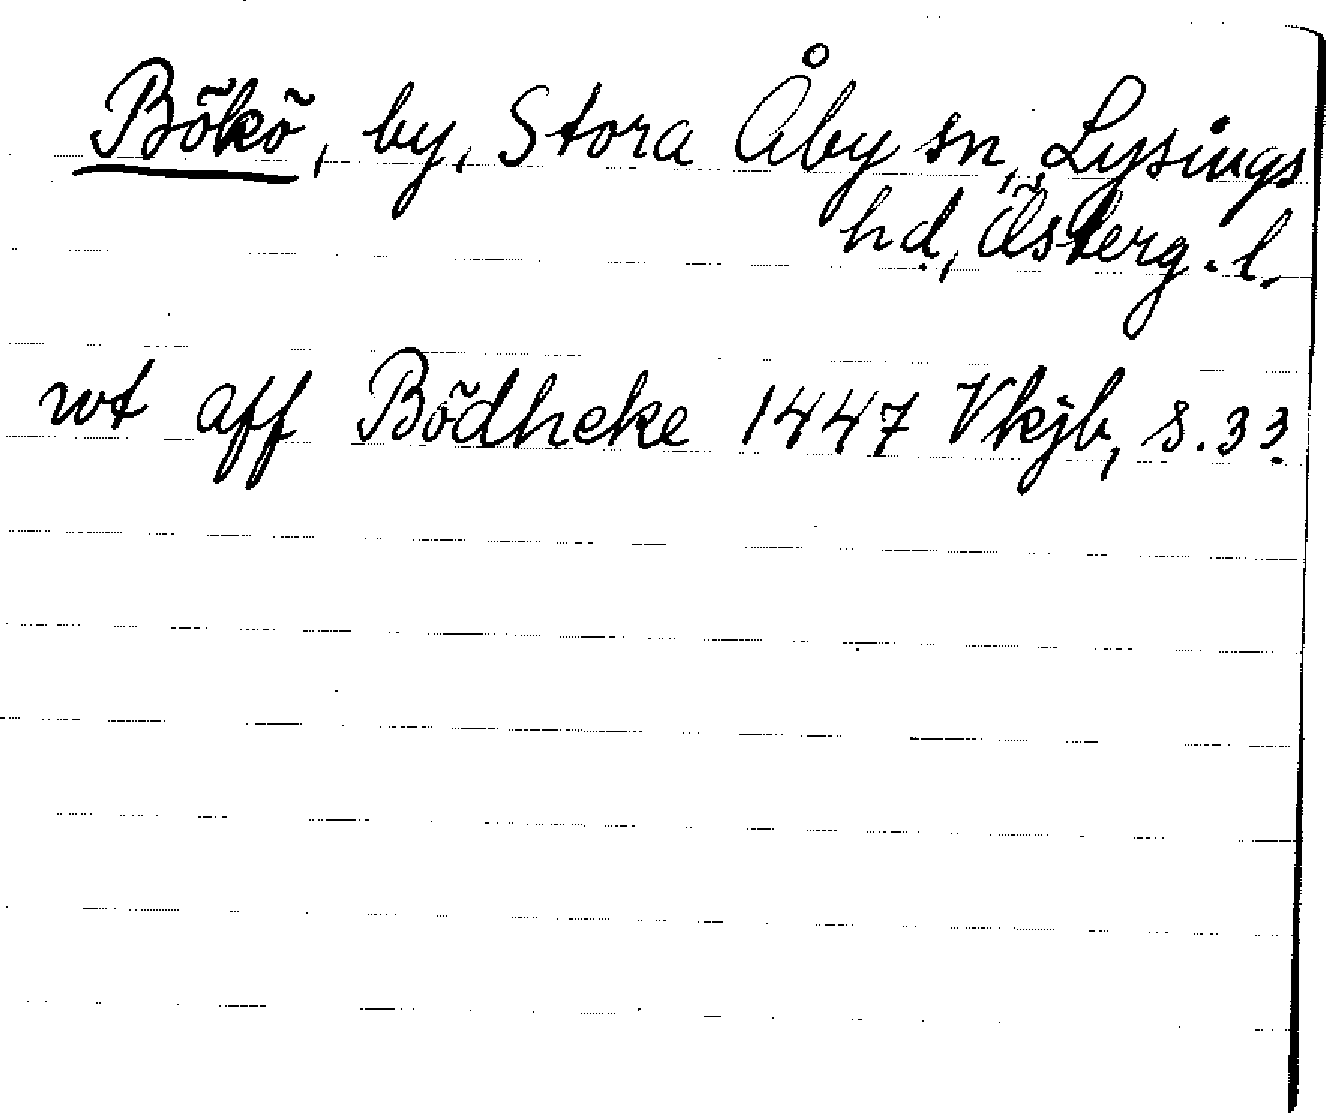 Bökö, by, Stora Åby sn, Lysings
hd, Österg. l.
wt aff Bödheke 1447 Vkjb, s. 33.